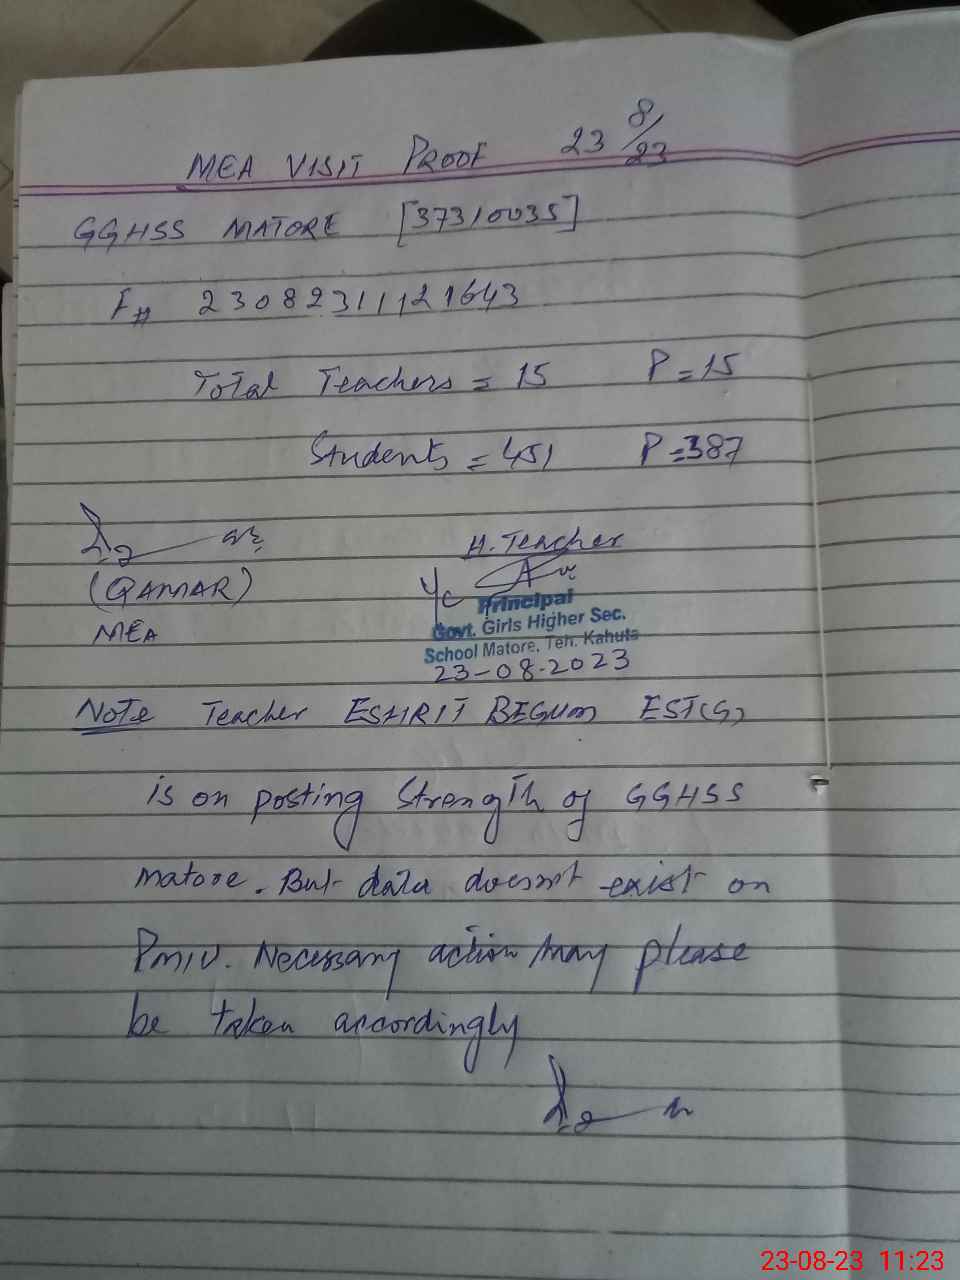 MEA VISIT PROOF 23/8/23
GGHSS MATORE [37310035]
F# 23082311121643
Total Teachers = 15 P = 15
Students = 451 P = 387
(QAMAR)
MEA
H. Teacher
Principal
Govt. Girls Higher Sec.
School Matore. Teh. Kahuta
23-08-2023
Note Teacher ESHRIT BEGUM EST(G)
is on posting Strength of GGHSS
matore. But data doesnot exist on
PMIU. Necessary action may please
be taken accordingly
23-08-23 11:23